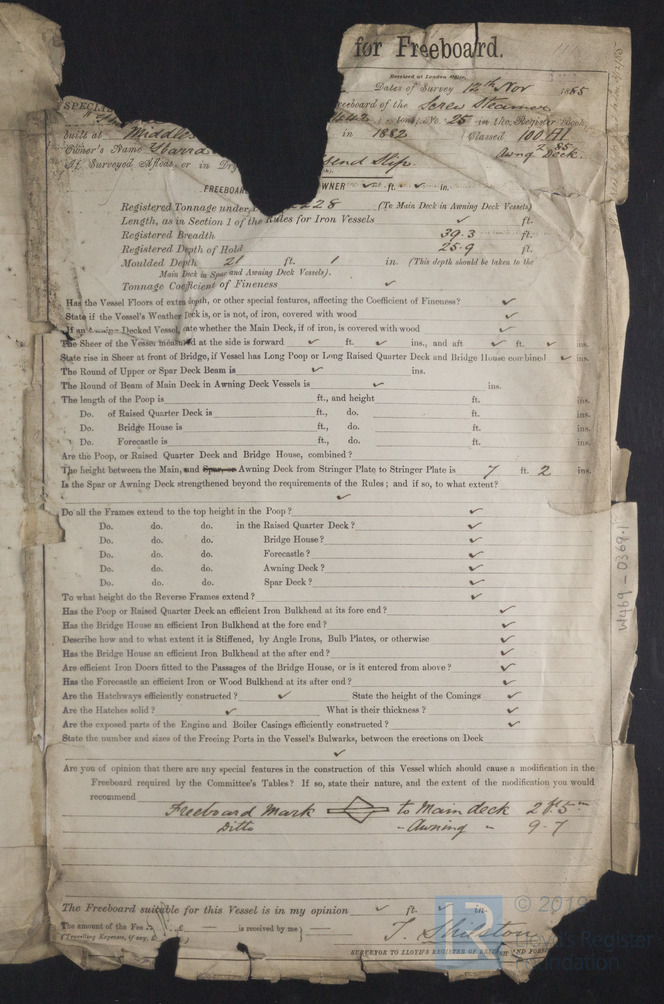 for Freeboard.
Received at London Office,
Dates of Survey 12th Nov 1885
SPECI
Freeboard of the Screw Steamer
tons, No. 25 in the Register Book,
built at Middles in 1882 Classed 100 A1
Owner's Name Ybarra 2 85
If Surveyed Afloat, or in Dry send Slip. Awng Deck.
FREEBOAR OWNER ✓ ft. ✓ in.
Registered Tonnage under 228 (To Main Deck in Awning Deck Vessels)
Length, as in Section 1 of the Rules for Iron Vessels ✓ ft.
Registered Breadth 39.3 ft.
Registered Depth of Hold 25.9 ft.
Moulded Depth 21 ft. 1 in. (This depth should be taken to the
Main Deck in Spar and Awning Deck Vessels).
Tonnage Coefficient of Fineness ✓
Has the Vessel Floors of extra depth, or other special features, affecting the Coefficient of Fineness? ✓
State if the Vessel's Weather Deck is, or is not, of iron, covered with wood ✓
If an Decked Vessel, ate whether the Main Deck, if of iron, is covered with wood ✓
The Sheer of the Vessel measured at the side is forward ✓ ft. ✓ ins., and aft ✓ ft. ✓ ins.
State rise in Sheer at front of Bridge, if Vessel has Long Poop or Long Raised Quarter Deck and Bridge House combined ✓ ins.
The Round of Upper or Spar Deck Beam is ✓ ins.
The Round of Beam of Main Deck in Awning Deck Vessels is ✓ ins.
The length of the Poop is ft., and height ft. ins.
Do. of Raised Quarter Deck is ft., do. ft. ins.
Do. Bridge House is ft., do. ft. ins.
Do. Forecastle is ft., do. ft. ins.
Are the Poop, or Raised Quarter Deck and Bridge House, combined?
The height between the Main, and Spar, or Awning Deck from Stringer Plate to Stringer Plate is 7 ft. 2 ins.
Is the Spar or Awning Deck strengthened beyond the requirements of the Rules; and if so, to what extent?
✓
Do all the Frames extend to the top height in the Poop? ✓
Do. do. do. in the Raised Quarter Deck? ✓
Do. do. do. Bridge House? ✓
Do. do. do. Forecastle? ✓
Do. do. do. Awning Deck? ✓
Do. do. do. Spar Deck? ✓
To what height do the Reverse Frames extend? ✓
Has the Poop or Raised Quarter Deck an efficient Iron Bulkhead at its fore end? ✓
Has the Bridge House an efficient Iron Bulkhead at the fore end? ✓
Describe how and to what extent it is Stiffened, by Angle Irons, Bulb Plates, or otherwise ✓
Has the Bridge House an efficient Iron Bulkhead at the after end? ✓
Are efficient Iron Doors fitted to the Passages of the Bridge House, or is it entered from above? ✓
Has the Forecastle an efficient Iron or Wood Bulkhead at its after end? ✓
Are the Hatchways efficiently constructed? ✓ State the height of the Comings ✓
Are the Hatches solid? ✓ What is their thickness? ✓
Are the exposed parts of the Engine and Boiler Casings efficiently constructed? ✓
State the number and sizes of the Freeing Ports in the Vessel's Bulwarks, between the erections on Deck
✓
Are you of opinion that there are any special features in the construction of this Vessel which should cause a modification in the
Freeboard required by the Committee's Tables? If so, state their nature, and the extent of the modification you would
recommend
Freeboard Mark to Main deck 2 ft. 5 in
Ditto - Awning " 9 - 7
The Freeboard suitable for this Vessel is in my opinion ✓ ft. ✓ in.
The amount of the Fee £ is received by me
(Travelling Expenses, if any, £
T. Shilston
SURVEYOR TO LLOYD'S REGISTER OF BRITISH AND FOREI
W469-0369.1
LR
© 2019
Lloyd's Register
Foundation